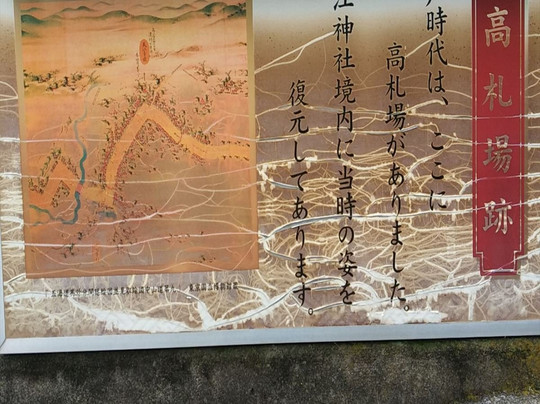 高札場跡
戸時代は、ここに
高札場がありました。
江神社境内に当時の姿を
復元してあります。